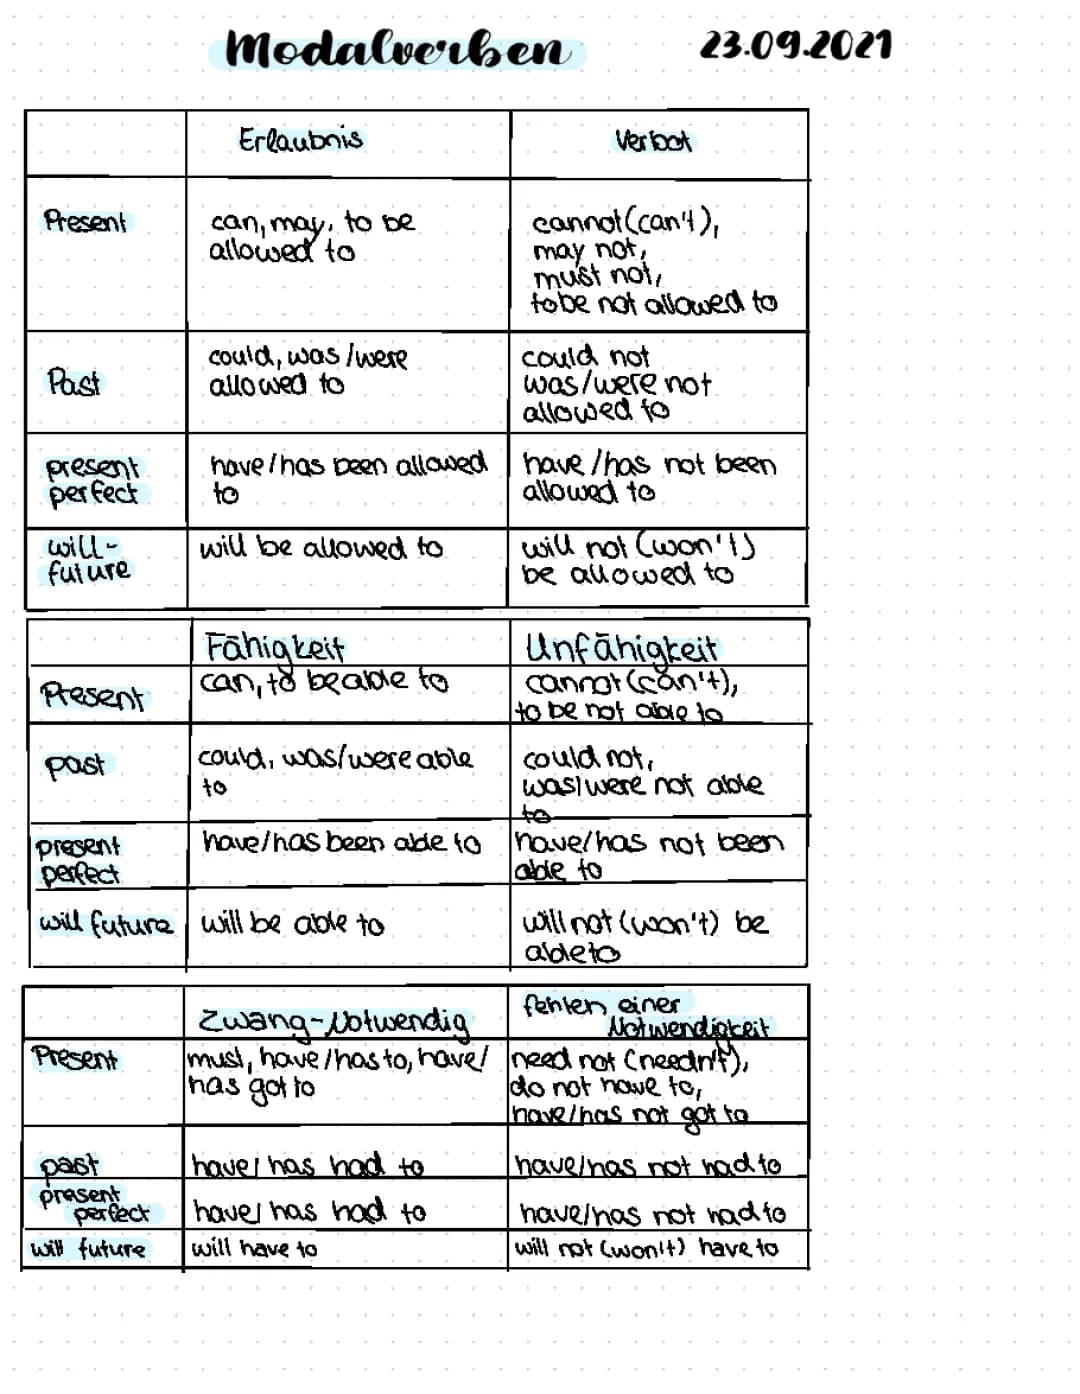 Modalverben 23.09.2021
Erlaubnis Verbot
Present can, may, to be allowed to cannot (can't), may not, must not, to be not allowed to
Past could, was/were allowed to could not was/were not allowed to
present perfect have/has been allowed to have/has not been allowed to
will-future will be allowed to will not (won't) be allowed to
Fähigkeit Unfähigkeit
Present can, to be able to cannot (can't), to be not able to
past could, was/were able to could not, was/were not able to
present perfect have/has been able to have/has not been able to
will future will be able to will not (won't) be able to
Zwang-Notwendig fehlen einer Notwendigkeit
Present must, have/has to, have/has got to need not (needn't), do not have to, have/has not got to
past have/has had to have/has not had to
present perfect have/has had to have/has not had to
will future will have to will not (won't) have to